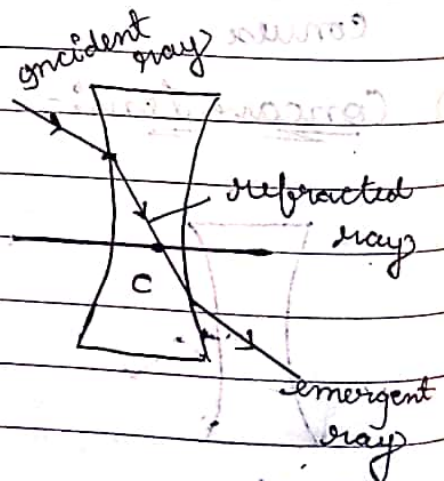 incident
ray
refracted
ray
C
emergent
ray